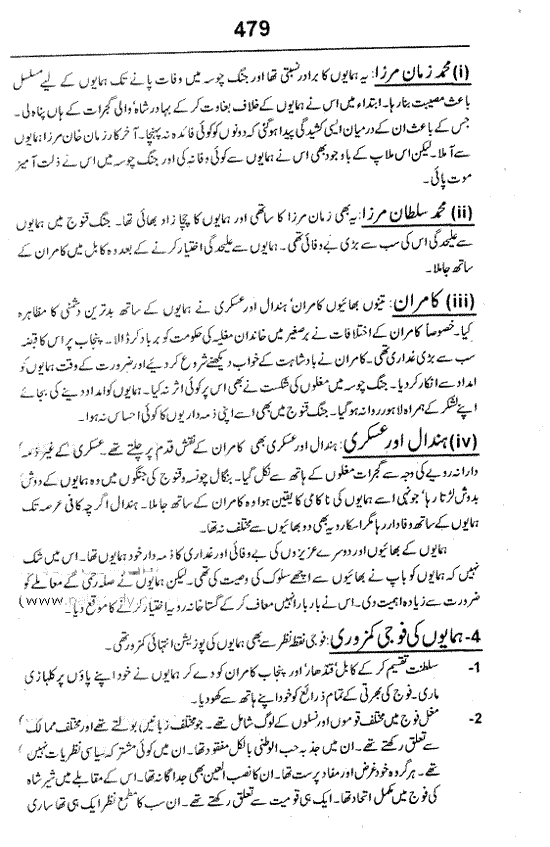 479
(i) محمد زمان مرزا: یہ ہمایوں کا برادر نسبتی تھا اور جنگ چوسہ میں وفات پانے تک ہمایوں کے لیے مسلسل
باعث مصیبت بنا رہا۔ ابتداء میں اس نے ہمایوں کے خلاف بغاوت کر کے بہادر شاہ' والی گجرات کے ہاں پناہ لی۔
جس کے باعث ان کے درمیان ایسی کشیدگی پیدا ہو گئی کہ دونوں کو کوئی فائدہ نہ پہنچا۔ آخر کار زمان خان مرزا ہمایوں
سے آ ملا۔ لیکن اس ملاپ کے باوجود بھی اس نے ہمایوں سے کوئی وفا نہ کی اور جنگ چوسہ میں اس نے ذلت آمیز
موت پائی۔
(ii) محمد سلطان مرزا: یہ بھی زمان مرزا کا ساتھی اور ہمایوں کا چچا زاد بھائی تھا۔ جنگ قنوج میں ہمایوں
سے علیحدگی اس کی سب سے بڑی بے وفائی تھی۔ ہمایوں سے علیحدگی اختیار کرنے کے بعد وہ کابل میں کامران کے
ساتھ جا ملا۔
(iii) کامران: تینوں بھائیوں کامران' ہندال اور عسکری نے ہمایوں کے ساتھ بدترین دشمنی کا مظاہرہ
کیا۔ خصوصاً کامران کے اختلافات نے برصغیر میں خاندان مغلیہ کی حکومت کو برباد کر ڈالا۔ پنجاب پر اس کا قبضہ
سب سے بڑی غداری تھی۔ کامران نے بادشاہت کے خواب دیکھنے شروع کر دیئے اور ضرورت کے وقت ہمایوں کو
امداد سے انکار کر دیا۔ جنگ چوسہ میں مغلوں کی شکست نے بھی اس پر کوئی اثر نہ کیا۔ ہمایوں کو امداد دینے کی بجائے
اپنے لشکر کے ہمراہ لاہور روانہ ہو گیا۔ جنگ قنوج میں بھی اسے اپنی ذمہ داریوں کا کوئی احساس نہ ہوا۔
(iv) ہندال اور عسکری: ہندال اور عسکری بھی کامران کے نقش قدم پر چلتے تھے۔ عسکری کے غیر ذمہ
دارانہ رویے کی وجہ سے گجرات مغلوں کے ہاتھ سے نکل گیا۔ بنگال چونسہ و قنوج کی جنگوں میں وہ ہمایوں کے دوش
بدوش لڑتا رہا' جونہی اسے ہمایوں کی ناکامی کا یقین ہوا وہ کامران کے ساتھ جا ملا۔ ہندال اگرچہ کافی عرصہ تک
ہمایوں کے ساتھ وفادار رہا مگر اسکا رویہ بھی دو بھائیوں سے مختلف نہ تھا۔
ہمایوں کے بھائیوں اور دوسرے عزیزوں کی بے وفائی اور غداری کا ذمہ دار خود ہمایوں تھا۔ اس میں شک
نہیں کہ ہمایوں کو باپ نے بھائیوں سے اچھے سلوک کی وصیت کی تھی۔ لیکن ہمایوں نے صلہ رحمی کے معاملے کو
ضرورت سے زیادہ اہمیت دی۔ اس نے بار بار انہیں معاف کر کے گستاخانہ رویہ اختیار کرنے کا موقع دیا۔
4- ہمایوں کی فوجی کمزوری: فوجی نقطہ نظر سے بھی ہمایوں کی پوزیشن انتہائی کمزور تھی۔
1- سلطنت تقسیم کر کے کابل' قندھار' اور پنجاب کامران کو دے کر ہمایوں نے خود اپنے پاؤں پر کلہاڑی
ماری۔ فوج کی بھرتی کے تمام ذرائع کو خود اپنے ہاتھ سے کھو دیا۔
2- مغل فوج میں مختلف قوموں اور نسلوں کے لوگ شامل تھے۔ جو مختلف زبانیں بولتے تھے اور مختلف ممالک
سے تعلق رکھتے تھے۔ ان میں جذبہ حب الوطنی بالکل مفقود تھا۔ ان میں کوئی مشترکہ سیاسی نظریات نہیں
تھے۔ ہر گروہ خود غرض اور مفاد پرست تھا۔ ان کا نصب العین بھی جداگانہ تھا۔ اس کے مقابلے میں شیر شاہ
کی فوج میں مکمل اتحاد تھا۔ ایک ہی قومیت سے تعلق رکھتے تھے۔ ان سب کا مطمع نظر ایک ہی تھا ساری